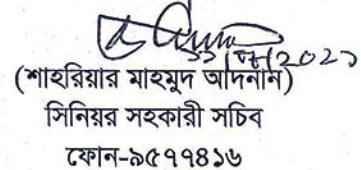 (শাহরিয়ার মাহমুদ আদনান)
সিনিয়র সহকারী সচিব
ফোন-৯৫৭৭৪১৬